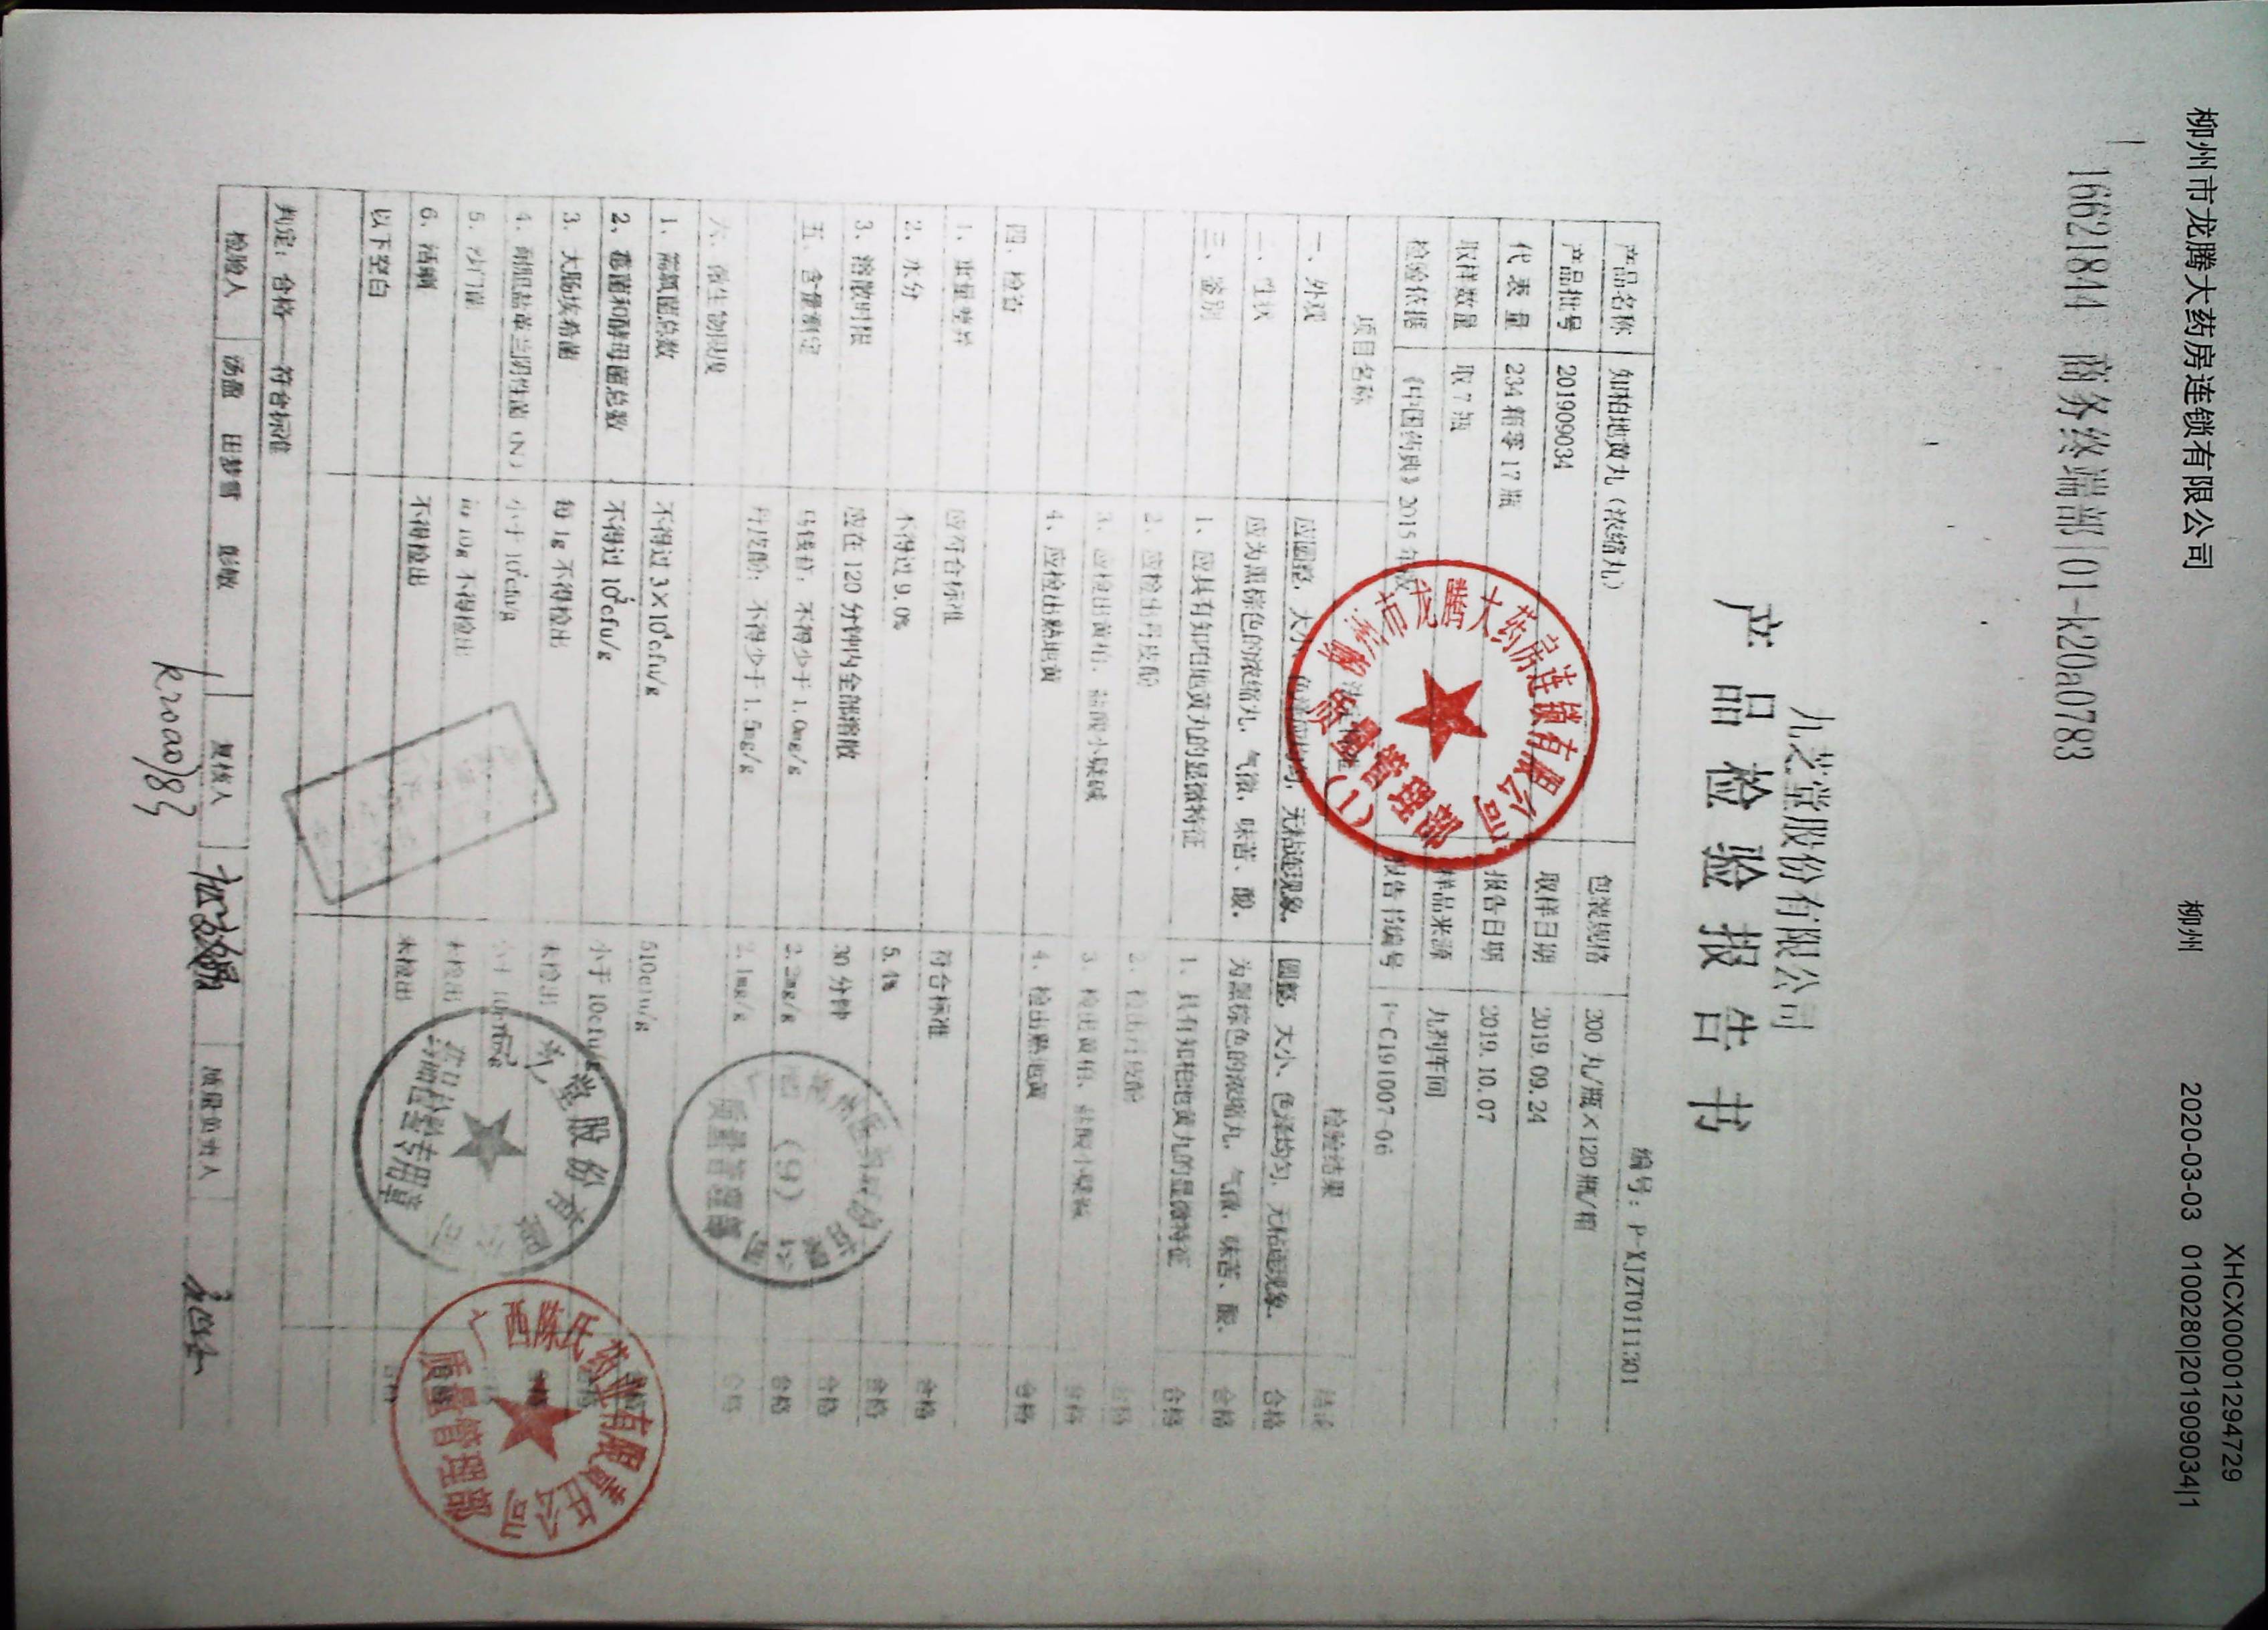 XHCX00001294729
柳州市龙腾大药房连锁有限公司 柳州 2020-03-03 0100280|201909034|1
16621844 商务终端部|01-k20a0783
九芝堂股份有限公司
产品检验报告书
编号：P-XJZT0111301
产品名称 知柏地黄丸（浓缩丸） 包装规格 200 丸/瓶×120 瓶/箱
产品批号 201909034 取样日期 2019.09.24
代表量 234 箱零 17 瓶 报告日期 2019.10.07
取样数量 取 7 瓶 样品来源 丸剂车间
检验依据 《中国药典》2015 年版 报告书编号 C191007-06
项目名称 检验结果 结论
一、外观 应圆整，大小、色泽均匀，无粘连现象。 圆整，大小、色泽均匀，无粘连现象。 合格
二、性状 应为黑棕色的浓缩丸，气微，味苦、酸。 为黑棕色的浓缩丸，气微，味苦、酸。 合格
三、鉴别 1、应具有知柏地黄丸的显微特征 1、具有知柏地黄丸的显微特征 合格
2、应检出丹皮酚 2、检出丹皮酚 合格
3、应检出黄柏、盐酸小檗碱 3、检出黄柏、盐酸小檗碱 合格
4、应检出熟地黄 4、检出熟地黄 合格
四、检查
1、重量差异 应符合标准 符合标准 合格
2、水分 不得过 9.0% 5.4% 合格
3、溶散时限 应在 120 分钟内全部溶散 30 分钟 合格
五、含量测定 马钱苷：不得少于 1.0mg/g 2.2mg/g 合格
丹皮酚：不得少于 1.5mg/g 2.1mg/g 合格
六、微生物限度
1、需氧菌总数 不得过 3×10⁴cfu/g 510cfu/g
2、霉菌和酵母菌总数 不得过 10²cfu/g 小于 10cfu/g 合格
3、大肠埃希菌 每 1g 不得检出 未检出 合格
4、耐胆盐革兰阴性菌（N） 小于 10²cfu/g 小于
5、沙门菌 每 10g 不得检出 未检出
6、活螨 不得检出 未检出 合格
以下空白
判定：合格——符合标准
检验人 汤盈 田梦雪 彭敏 复核人 质量负责人
k20a0783
柳州市龙腾大药房连锁有限公司
质量管理部
(1)
堂股份有限公司
检验专用章
质量管理部
(9)
广西陈氏药业有限责任公司
质量管理部